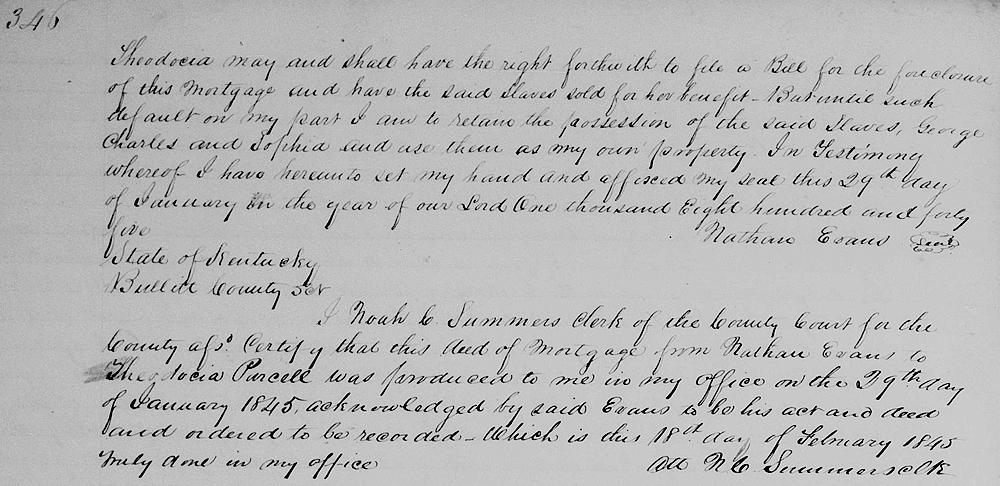 346
Theodocia may and shall have the right forthwith to file a Bill for the foreclosure
of this Mortgage and have the said slaves sold for her benefit - But until such
default on my part I am to retain the possession of the said slaves, George
Charles and Sophia and use them as my own property. In Testimony
whereof I have hereunto set my hand and affixed my seal this 29th day
of January in the year of our Lord One thousand Eight hundred and forty
five
Nathan Evans Seal
State of Kentucky
Bullitt County Sct
I Noah C. Summers Clerk of the County Court for the
County afsd. Certify that this deed of Mortgage from Nathan Evans to
Theodocia Purcell was produced to me in my office on the 29th day
of January 1845, acknowledged by said Evans to be his act and deed
and ordered to be recorded - Which is this 18th day of February 1845
truly done in my office
Att N.C. Summers clk